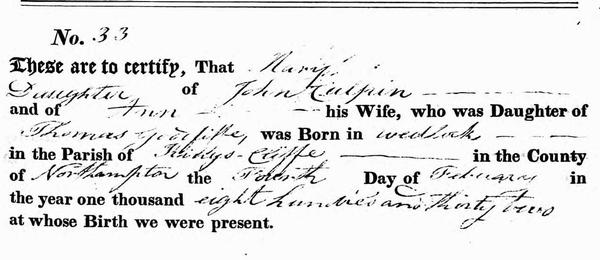 No. 33
These are to certify, That Mary
Daughter of John Culpin
and of Ann his Wife, who was Daughter of
Thomas was Born in wedlock
in the Parish of Kings-Cliffe in the County
of Northampton the Fourth Day of February in
the year one thousand eight hundred and thirty two
at whose Birth we were present.